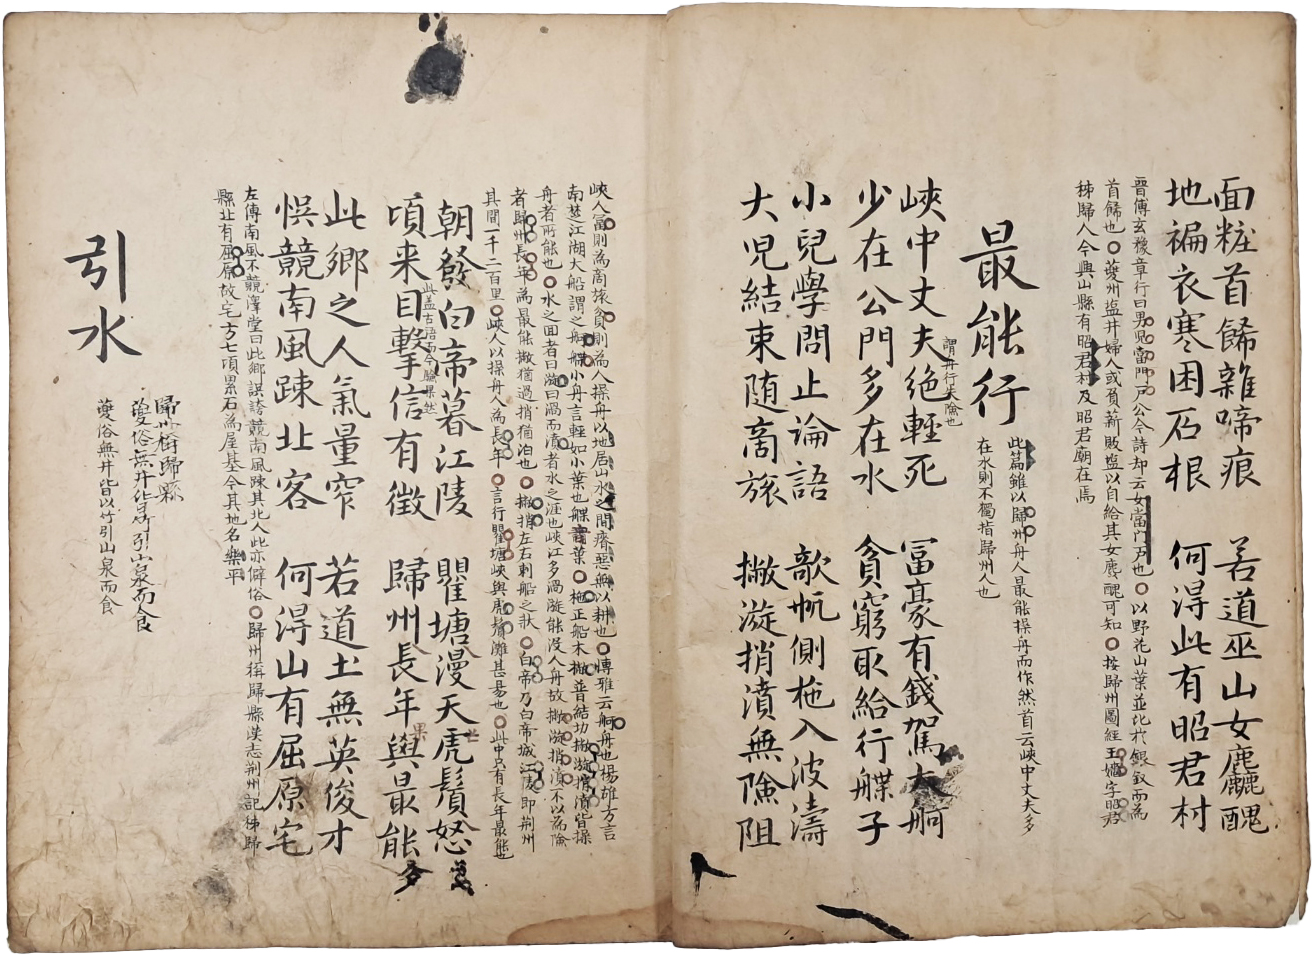 面粧首餙雜啼痕　若道巫山女麤醜
地褊衣寒困石根　何得此有昭君村
晋傅玄豫章行曰男兒當門戸公今詩却云女當門戸也○以野花山葉並比於銀釵而為
首餙也○夔州塩井婦人或負薪販塩以自給其女麁醜可知○按歸州圖經王嬙字昭君
秭歸人今興山縣有昭君村及昭君廟在焉
最能行
此篇雖以歸州舟人最能操舟而作然首云峽中丈夫多
在水則不獨指歸州人也
謂舟行夫險也
峽中丈夫絶輕死　冨豪有錢駕大舸
少在公門多在水　貪窮取給行艓子
小兒學問止論語　歆帆側柂入波濤
大児結束随商旅　撇漩捎濆無險阻
峽人富則為商旅貪則為人操舟以地居山水之間瘠惡無以耕也○博雅云舸舟也楊雄方言
南楚江湖大船謂之舸艓小舟言輕如小葉也艓音葉○柂正船木撇普結切撇漩捎濆皆操
舟者所能也○水之回者曰漩曰渦而濆者水之涯也峽江多渦漩能没人舟故撇漩捎濆不以為險
者歸州長年為最能撇猶過捎猶泊也○撇捎左右刺船之狀○白帝乃白帝城江陵即荆州
其間一千二百里○峽人以操舟人為長年○言行瞿塘峽與虎鬚灘甚易也○此中只有長年最能也
朝發白帝暮江陵　瞿塘漫天虎鬚怒
此盖古語而今驗果然
頃来目擊信有徴　歸州長年與最能
果
多
此鄉之人氣量窄　若道土無英俊才
悞競南風踈北客　何得山有屈原宅
左傳南風不競澤堂曰此鄉謀誇競南風踈其北人此亦僻俗○歸州秭歸縣漢志荆州記秭歸
縣北有屈原故宅方七項累石為屋基今其地名樂平
引水
夔俗無井皆以竹引山泉而食
夔俗無井皆以竹引山泉而食